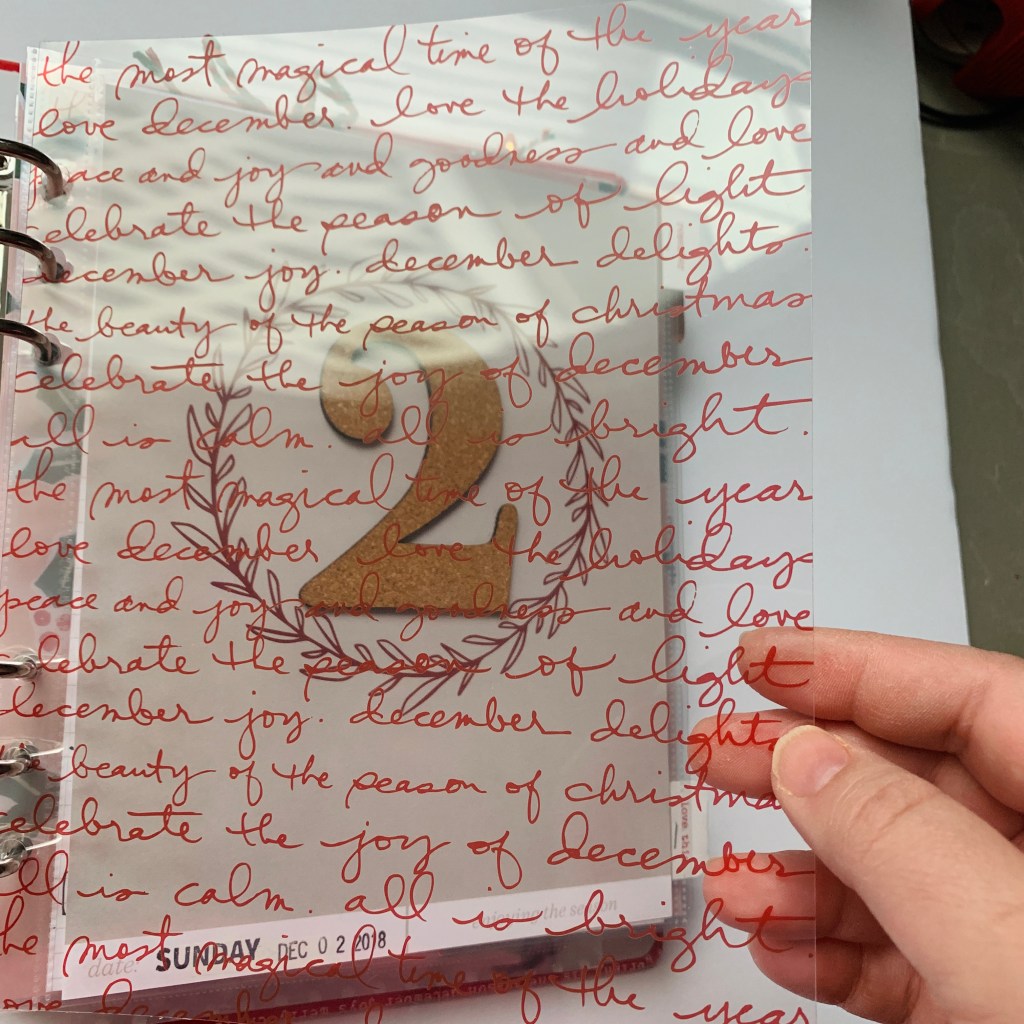 the most magical time of the year
love december. love the holidays
peace and joy and goodness and love
celebrate the season of light
december joy. december delights.
the beauty of the season of christmas
celebrate the joy of december
all is calm. all is bright.
the most magical time of the year
love december love the holidays
peace and joy and goodness and love
celebrate the season of light
december joy. december delights.
the beauty of the season of christmas
celebrate the joy of december
all is calm. all is bright.
the most magical time of the year
love december
2
love this
enjoying the season
date: SUNDAY DEC 02 2018